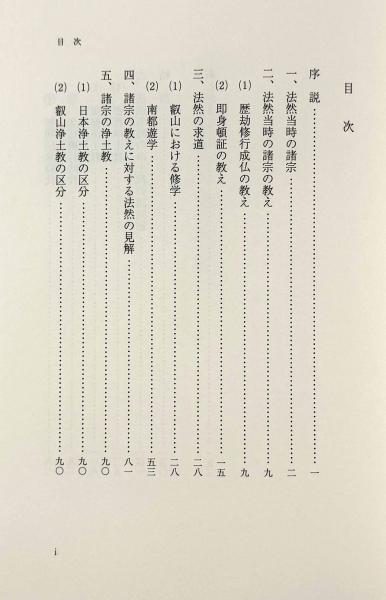 目次
目次
序説……………………………一
一、法然当時の諸宗……………………………二
二、法然当時の諸宗の教え……………………………九
(1) 歴劫修行成仏の教え……………………………九
(2) 即身頓証の教え……………………………一五
三、法然の求道……………………………二八
(1) 叡山における修学……………………………二八
(2) 南都遊学……………………………五三
四、諸宗の教えに対する法然の見解……………………………八一
五、諸宗の浄土教……………………………九〇
(1) 日本浄土教の区分……………………………九〇
(2) 叡山浄土教の区分……………………………九〇
i